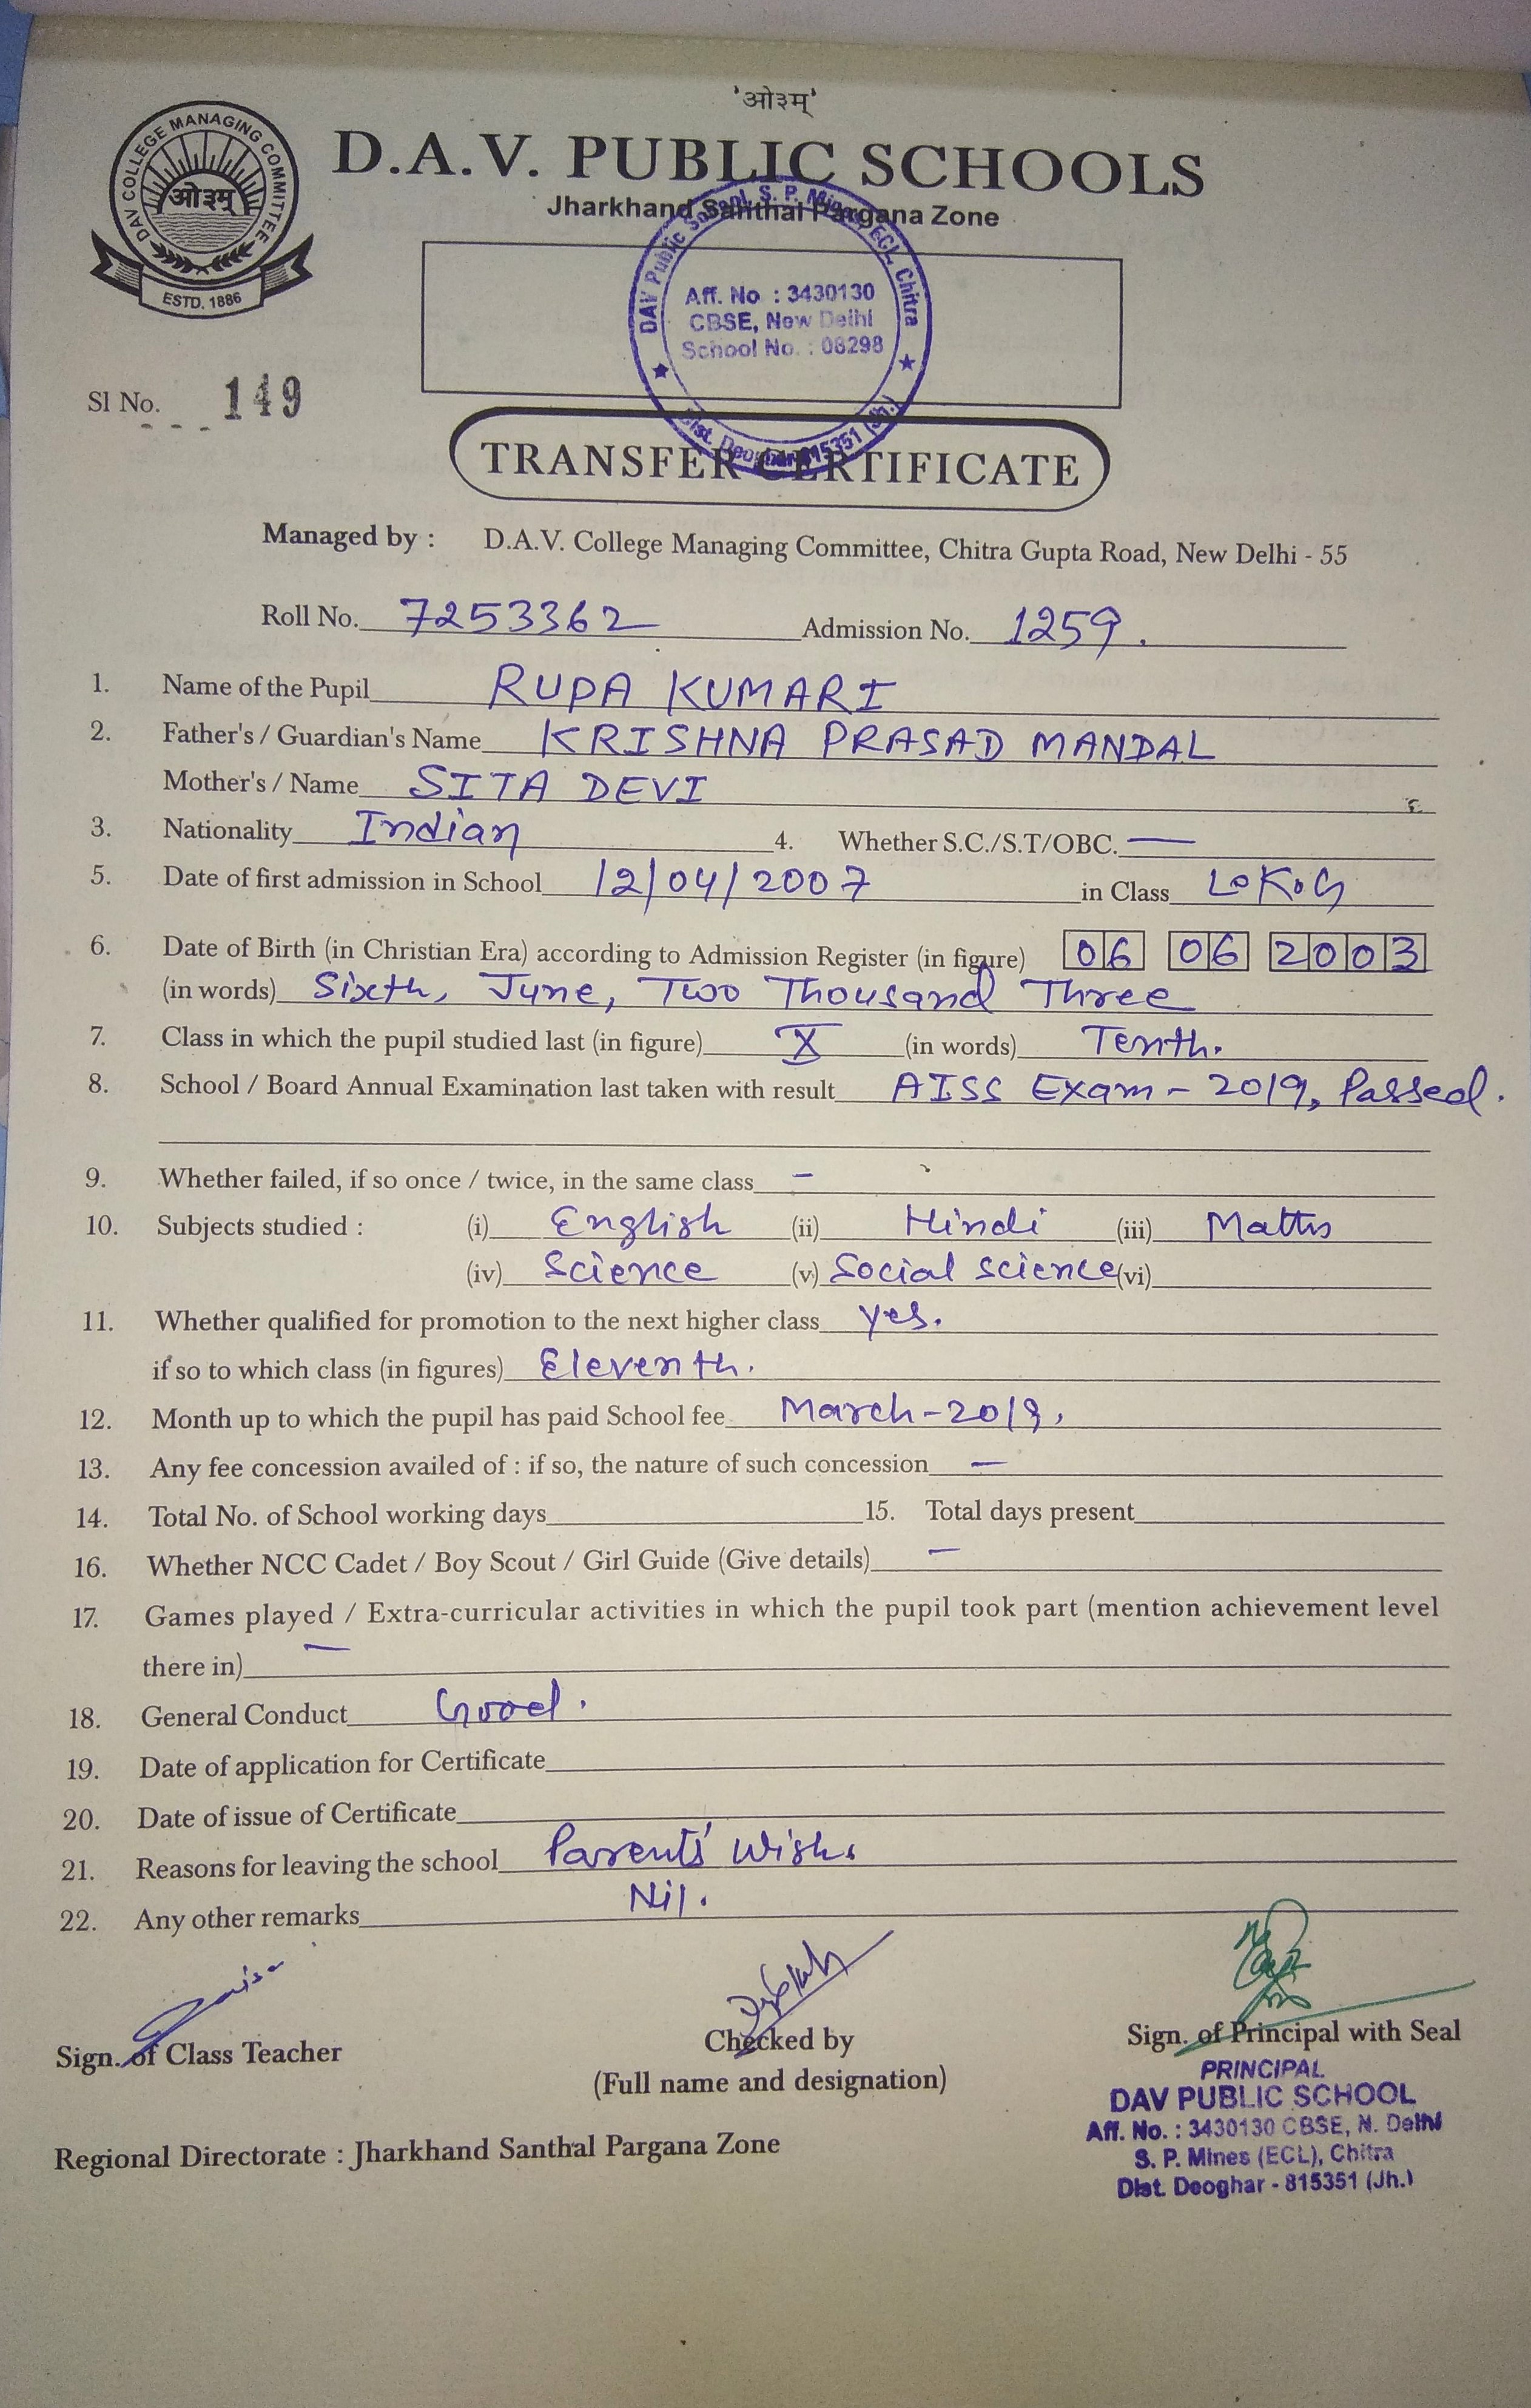 'ओ३म्'
DAV COLLEGE MANAGING COMMITTEE
ओ३म्
ESTD. 1886
D.A.V. PUBLIC SCHOOLS
Jharkhand Santhal Pargana Zone
DAV Public School, S. P. Mines, ECL, Chitra
Aff. No : 3430130
CBSE, New Delhi
School No. : 08298
Dist. Deoghar 815351 (Jh.)
Sl No. 149
TRANSFER CERTIFICATE
Managed by : D.A.V. College Managing Committee, Chitra Gupta Road, New Delhi - 55
Roll No. 7253362 Admission No. 1259.
1. Name of the Pupil RUPA KUMARI
2. Father's / Guardian's Name KRISHNA PRASAD MANDAL
Mother's / Name SITA DEVI
3. Nationality Indian 4. Whether S.C./S.T/OBC. —
5. Date of first admission in School 12/04/2007 in Class L.K.G
6. Date of Birth (in Christian Era) according to Admission Register (in figure) 06 06 2003
(in words) Sixth, June, Two Thousand Three
7. Class in which the pupil studied last (in figure) X (in words) Tenth.
8. School / Board Annual Examination last taken with result AISS Exam - 2019, Passed.
9. Whether failed, if so once / twice, in the same class –
10. Subjects studied : (i) English (ii) Hindi (iii) Maths
(iv) Science (v) Social science (vi)
11. Whether qualified for promotion to the next higher class yes.
if so to which class (in figures) Eleventh.
12. Month up to which the pupil has paid School fee March-2019.
13. Any fee concession availed of : if so, the nature of such concession —
14. Total No. of School working days 15. Total days present
16. Whether NCC Cadet / Boy Scout / Girl Guide (Give details) —
17. Games played / Extra-curricular activities in which the pupil took part (mention achievement level
there in) —
18. General Conduct Good.
19. Date of application for Certificate
20. Date of issue of Certificate
21. Reasons for leaving the school Parents' Wish.
22. Any other remarks Nil.
Sign. of Class Teacher
Checked by
(Full name and designation)
Sign. of Principal with Seal
PRINCIPAL
DAV PUBLIC SCHOOL
Aff. No. : 3430130 CBSE, N. Delhi
S. P. Mines (ECL), Chitra
Dist. Deoghar - 815351 (Jh.)
Regional Directorate : Jharkhand Santhal Pargana Zone